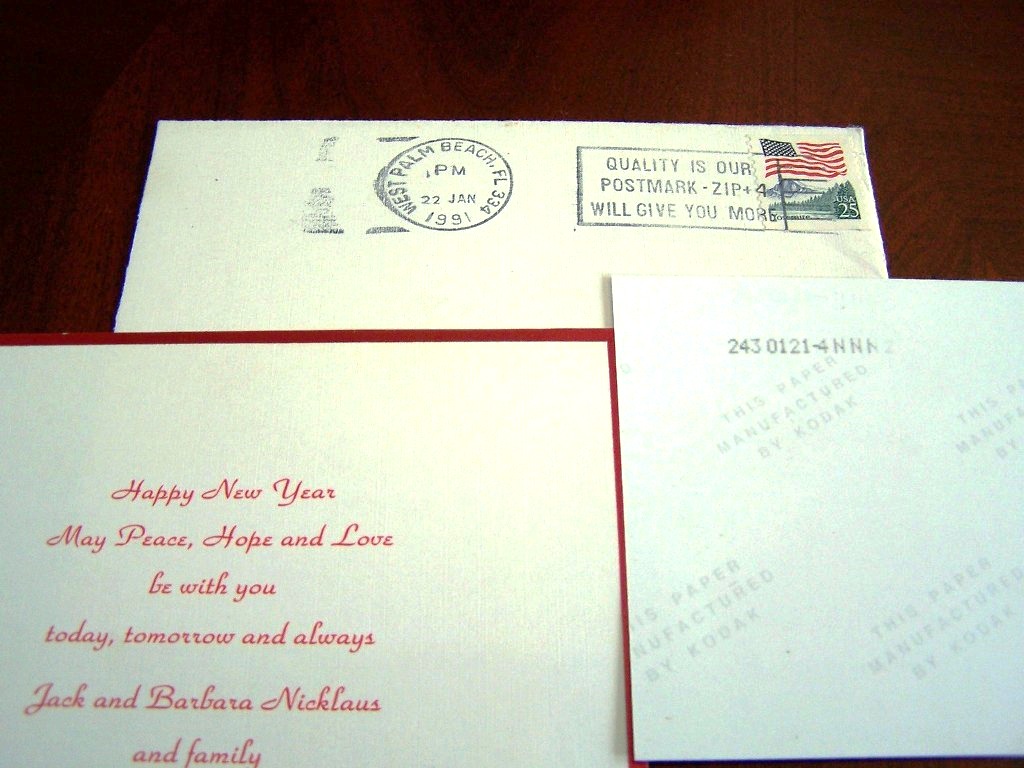 WEST PALM BEACH, FL 334
PM
22 JAN
1991
QUALITY IS OUR
POSTMARK - ZIP+4
WILL GIVE YOU MORE
USA
25
Yosemite
243 0121-4NNN 2
THIS PAPER
MANUFACTURED
BY KODAK
THIS PA
MANUFAC
BY
THIS PAPER
MANUFACTURED
BY KODAK
THIS PAPER
MANUFACTURED
BY KODAK
Happy New Year
May Peace, Hope and Love
be with you
today, tomorrow and always
Jack and Barbara Nicklaus
and family